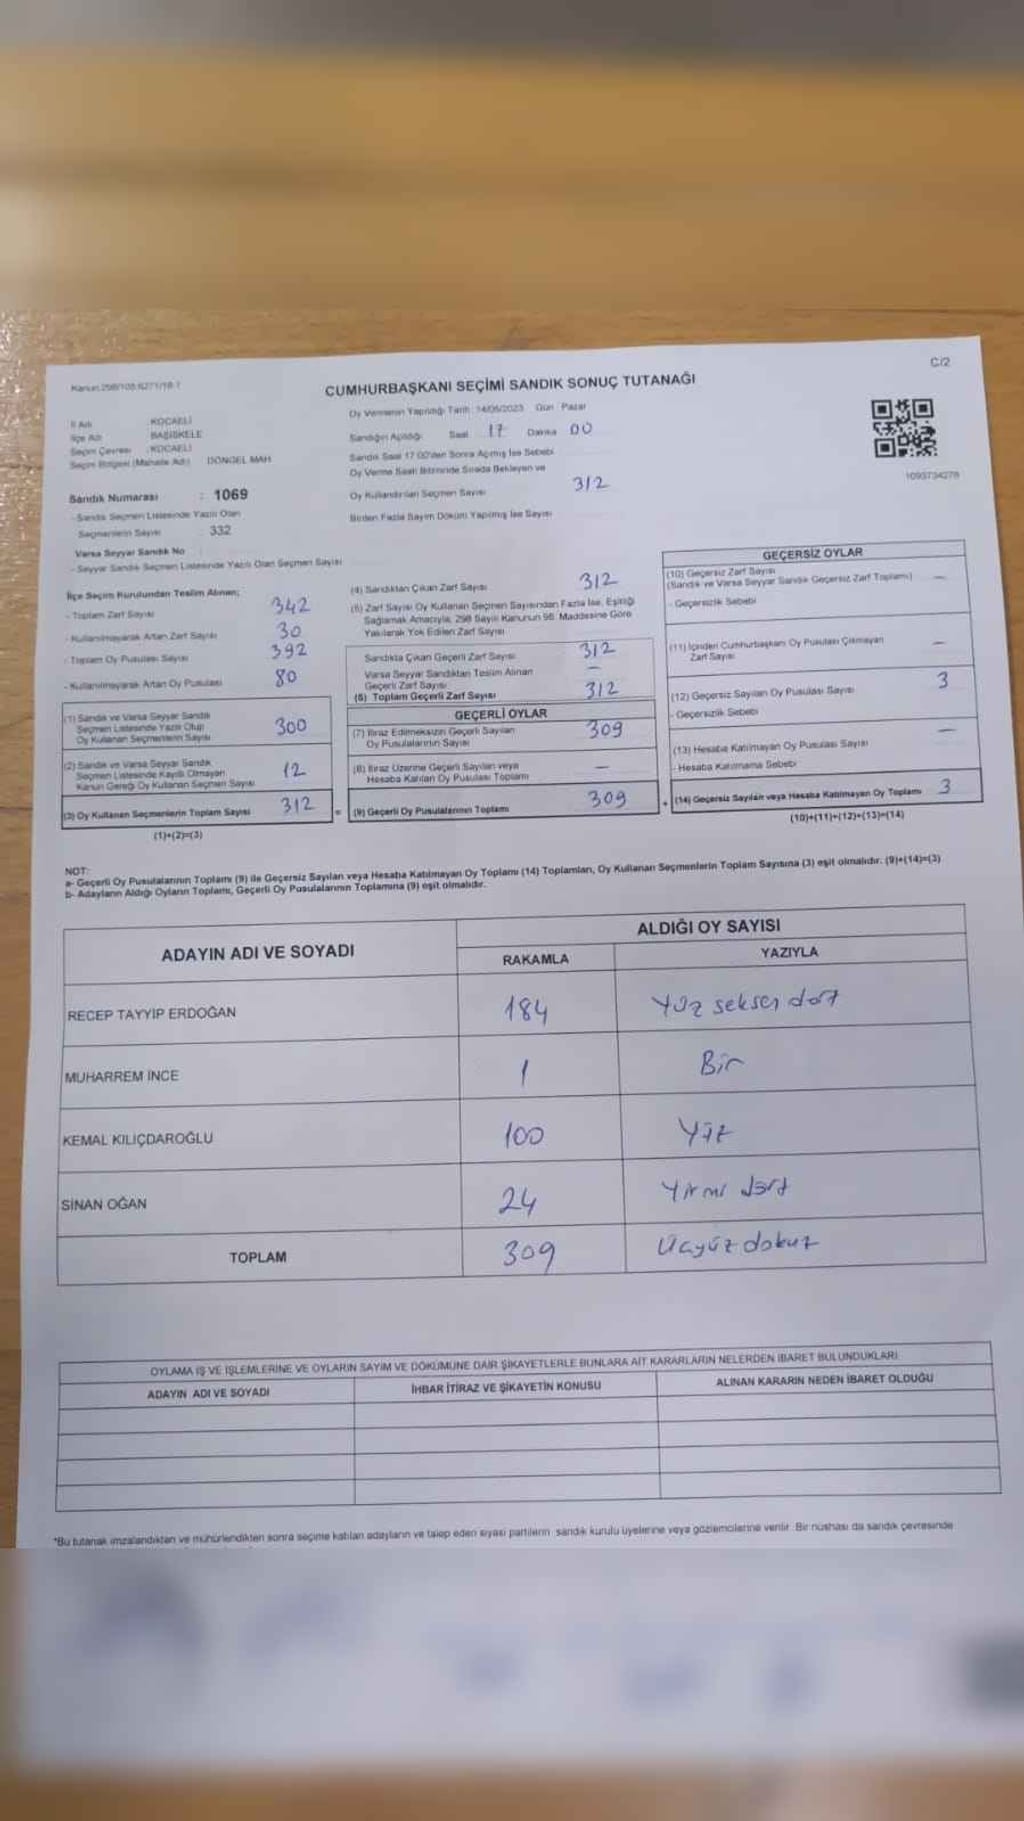 Kanun:298/105:6271/18-1
C/2
CUMHURBAŞKANI SEÇİMİ SANDIK SONUÇ TUTANAĞI
İl Adı : KOCAELİ
İlçe Adı : BAŞİSKELE
Seçim Çevresi : KOCAELİ
Seçim Bölgesi (Mahalle Adı) : DÖNGEL MAH
Sandık Numarası : 1069
- Sandık Seçmen Listesinde Yazılı Olan
Seçmenlerin Sayısı : 332
Varsa Seyyar Sandık No
- Seyyar Sandık Seçmen Listesinde Yazılı Olan Seçmen Sayısı
Oy Vermenin Yapıldığı Tarih: 14/05/2023 Gün Pazar
Sandığın Açıldığı Saat 17 Dakika 00
Sandık Saat 17.00'den Sonra Açılmış İse Sebebi
Oy Verme Saati Bitiminde Sırada Bekleyen ve
Oy Kullandırılan Seçmen Sayısı 312
Birden Fazla Sayım Döküm Yapılmış İse Sayısı
1093734278
İlçe Seçim Kurulundan Teslim Alınan;
- Toplam Zarf Sayısı 342
- Kullanılmayarak Artan Zarf Sayısı 30
- Toplam Oy Pusulası Sayısı 392
- Kullanılmayarak Artan Oy Pusulası 80
(1) Sandık ve Varsa Seyyar Sandık
Seçmen Listesinde Yazılı Olup
Oy Kullanan Seçmenlerin Sayısı 300
(2) Sandık ve Varsa Seyyar Sandık
Seçmen Listesinde Kayıtlı Olmayan
Kanun Gereği Oy Kullanan Seçmen Sayısı 12
(3) Oy Kullanan Seçmenlerin Toplam Sayısı 312
(1)+(2)=(3)
(4) Sandıktan Çıkan Zarf Sayısı 312
(5) Zarf Sayısı Oy Kullanan Seçmen Sayısından Fazla İse, Eşitliği
Sağlamak Amacıyla, 298 Sayılı Kanunun 98. Maddesine Göre
Yakılarak Yok Edilen Zarf Sayısı
Sandıkta Çıkan Geçerli Zarf Sayısı 312
Varsa Seyyar Sandıktan Teslim Alınan
Geçerli Zarf Sayısı —
(6) Toplam Geçerli Zarf Sayısı 312
GEÇERLİ OYLAR
(7) İtiraz Edilmeksizin Geçerli Sayılan
Oy Pusulalarının Sayısı 309
(8) İtiraz Üzerine Geçerli Sayılan veya
Hesaba Katılan Oy Pusulası Toplamı —
= (9) Geçerli Oy Pusulalarının Toplamı 309
GEÇERSİZ OYLAR
(10) Geçersiz Zarf Sayısı
(Sandık ve Varsa Seyyar Sandık Geçersiz Zarf Toplamı) —
- Geçersizlik Sebebi
(11) İçinden Cumhurbaşkanı Oy Pusulası Çıkmayan
Zarf Sayısı —
(12) Geçersiz Sayılan Oy Pusulası Sayısı 3
- Geçersizlik Sebebi
(13) Hesaba Katılmayan Oy Pusulası Sayısı —
- Hesaba Katılmama Sebebi
+ (14) Geçersiz Sayılan veya Hesaba Katılmayan Oy Toplamı 3
(10)+(11)+(12)+(13)=(14)
NOT:
a- Geçerli Oy Pusulalarının Toplamı (9) ile Geçersiz Sayılan veya Hesaba Katılmayan Oy Toplamı (14) Toplamları, Oy Kullanan Seçmenlerin Toplam Sayısına (3) eşit olmalıdır. (9)+(14)=(3)
b- Adayların Aldığı Oyların Toplamı, Geçerli Oy Pusulalarının Toplamına (9) eşit olmalıdır.
ADAYIN ADI VE SOYADI ALDIĞI OY SAYISI
RAKAMLA YAZIYLA
RECEP TAYYİP ERDOĞAN 184 Yüz seksen dört
MUHARREM İNCE 1 Bir
KEMAL KILIÇDAROĞLU 100 Yüz
SİNAN OĞAN 24 Yirmi dört
TOPLAM 309 Üçyüz dokuz
OYLAMA İŞ VE İŞLEMLERİNE VE OYLARIN SAYIM VE DÖKÜMÜNE DAİR ŞİKAYETLERLE BUNLARA AİT KARARLARIN NELERDEN İBARET BULUNDUKLARI
ADAYIN ADI VE SOYADI İHBAR İTİRAZ VE ŞİKAYETİN KONUSU ALINAN KARARIN NEDEN İBARET OLDUĞU
*Bu tutanak imzalandıktan ve mühürlendikten sonra seçime katılan adayların ve talep eden siyasi partilerin sandık kurulu üyelerine veya gözlemcilerine verilir. Bir nüshası da sandık çevresinde